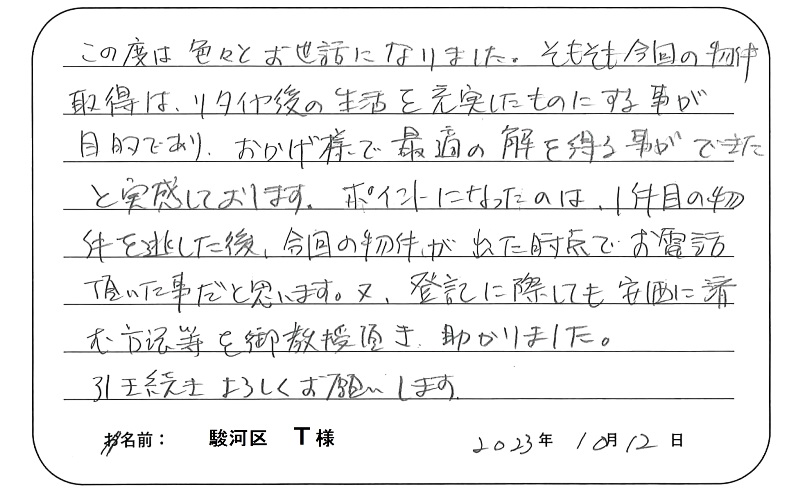 この度は色々とお世話になりました。そもそも今回の物件
取得は、リタイヤ後の生活を充実したものにする事が
目的であり、おかげ様で最適の解を得る事ができた
と実感しております。ポイントになったのは、1件目の物
件を逃した後、今回の物件が出た時点でお電話
頂いた事だと思います。又、登記に際しても安価に済
む方法等を御教授頂き、助かりました。
引き続きよろしくお願いします
お名前： 駿河区 T様 2023年 10月 12日